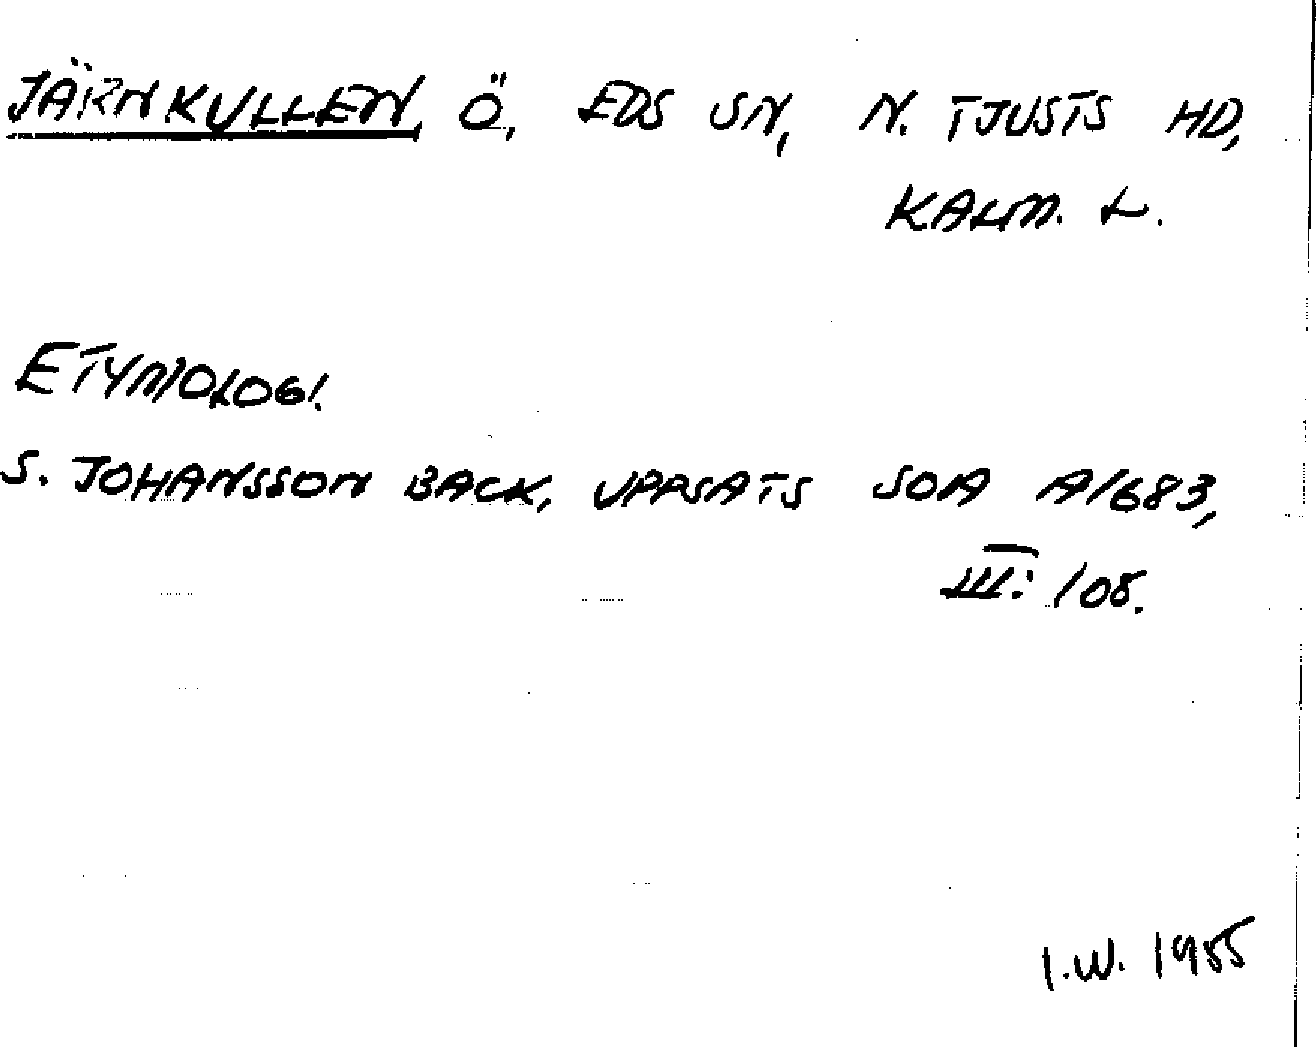 JÄRNKULLEN, Ö, EDS SN, N. TJUSTS HD,
KALM. L.
ETYMOLOGI.
S. JOHANSSON BACK, UPPSATS SOA A1683,
III: 108.
I.W. 1955